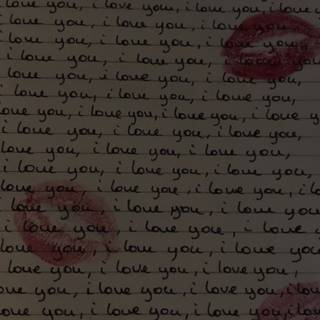 love you, i love you, i love you, i love y
love you, i love you, i love you,
love you, i love you, i love you,
i love you, i love you, i love you
love you, i love you, i love you,
love you, i love you, i love you,
love you, i love you, i love you, i love y
i love you, i love you, i love you,
love you, i love you, i love you,
i love you, i love you, i love you,
love you, i love you, i love you, i lo
love you, i love you, i love you
i love you, i love you, i love
love you, i love you, i love you
love you, i love you, i love you,
you, i love you, i love you, i love
you, i love you, i love you, i love